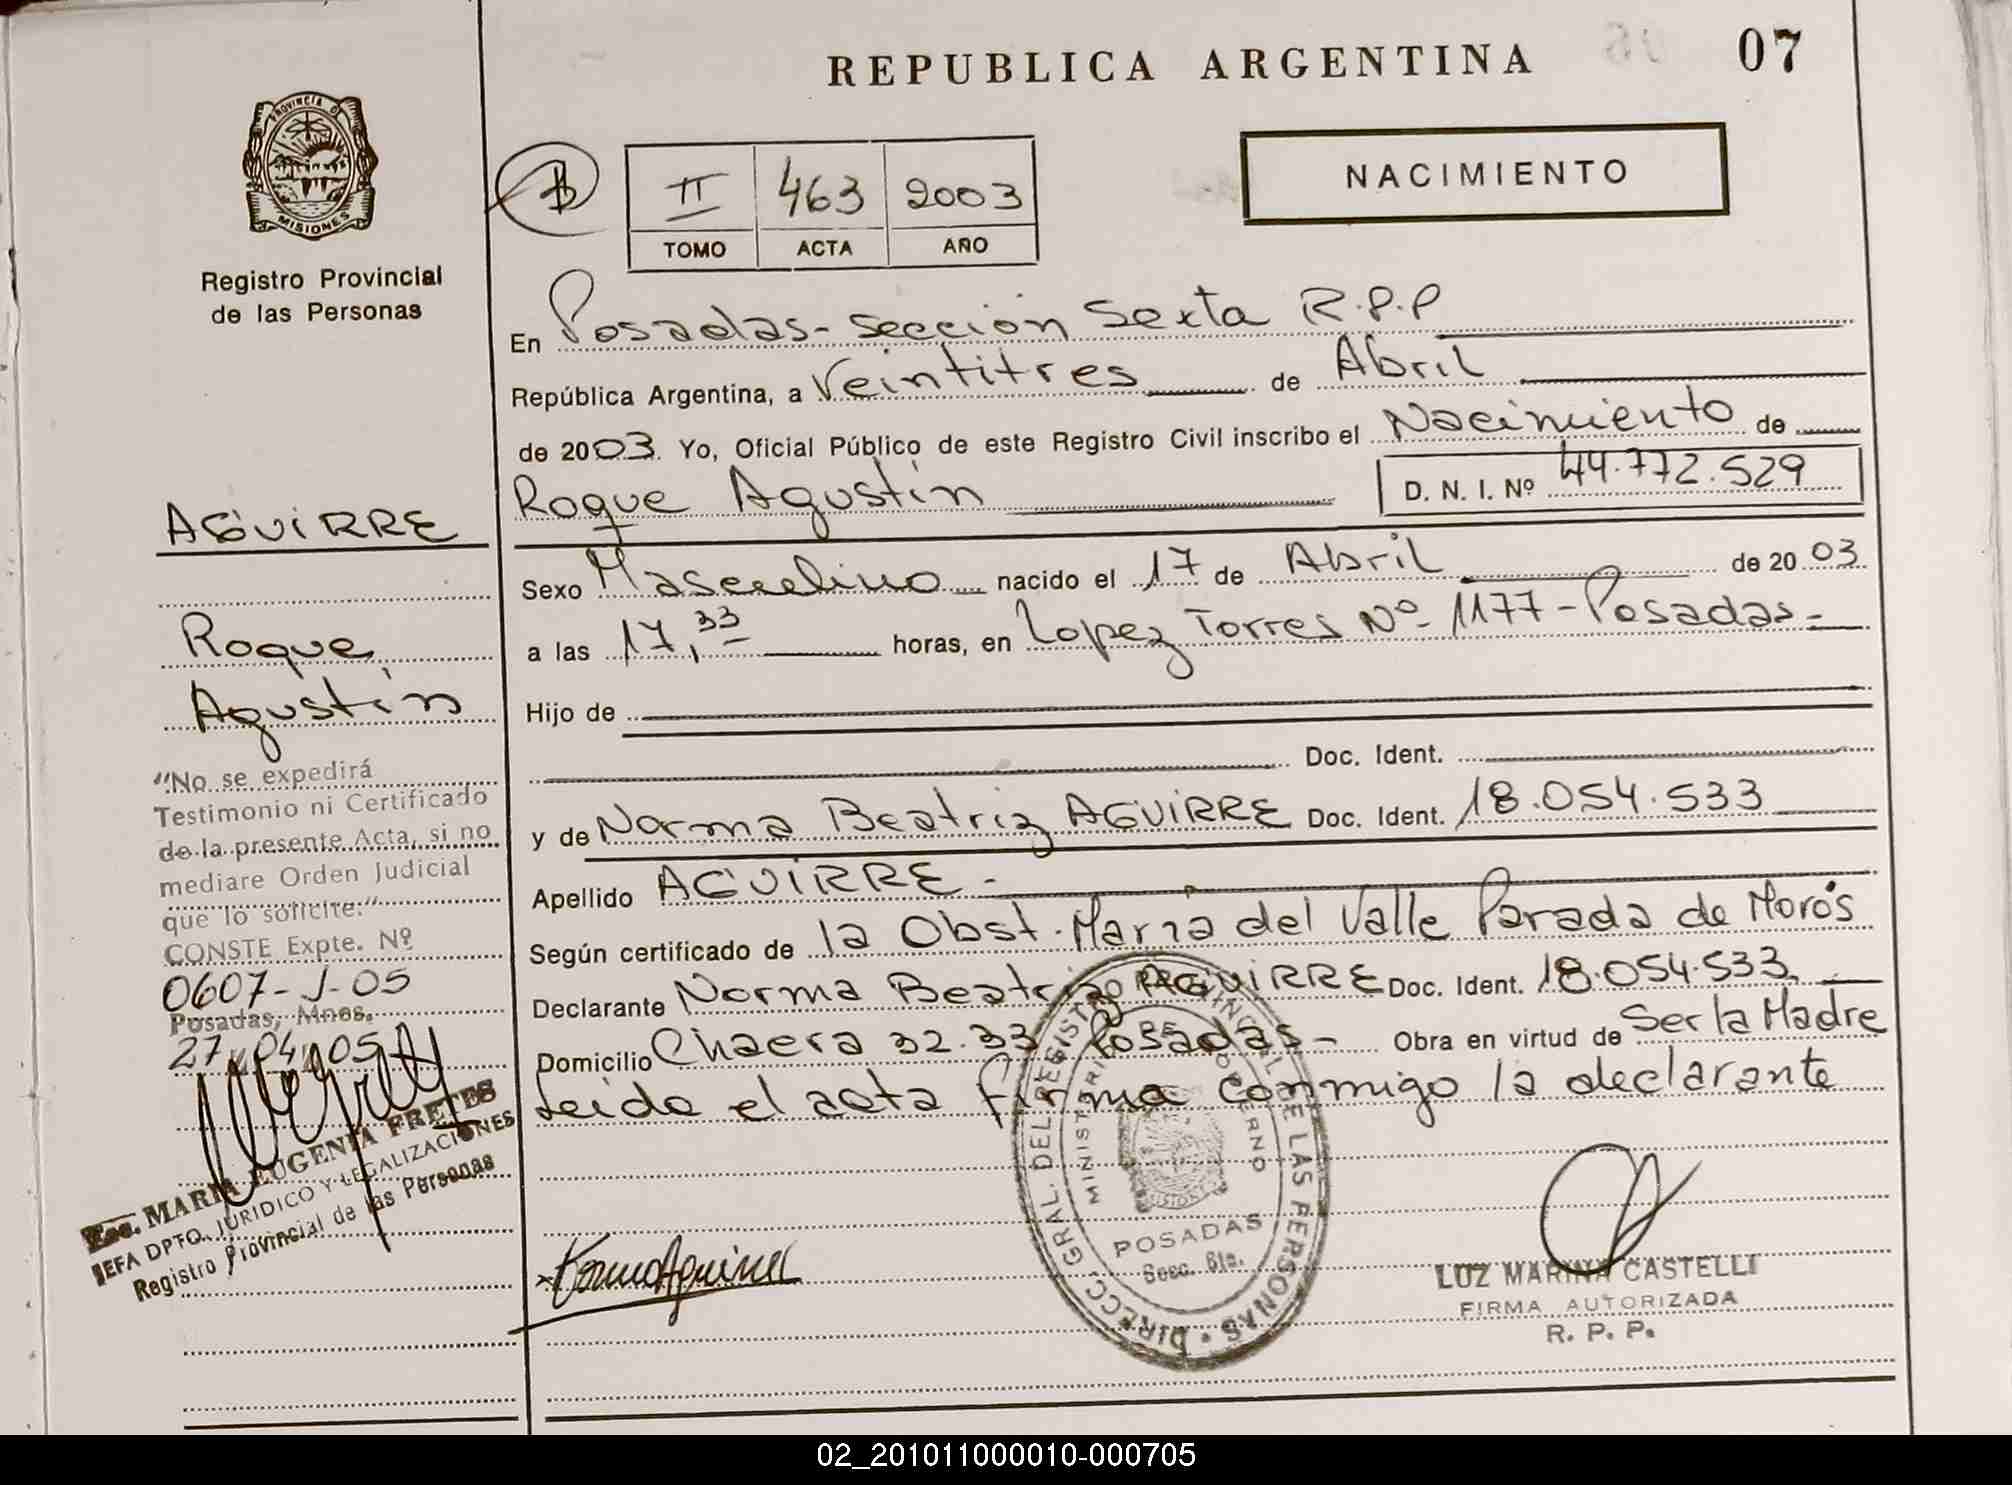 REPUBLICA ARGENTINA
07
PROVINCIA DE
MISIONES
Registro Provincial
de las Personas
II 463 2003
TOMO ACTA AÑO
NACIMIENTO
En Posadas-Sección Sexta R.P.P
República Argentina, a Veintitres de Abril
de 2003. Yo, Oficial Público de este Registro Civil inscribo el Nacimiento de
Roque Agustín
D. N. I. Nº 44.772.529
Sexo Masculino nacido el 17 de Abril de 2003
a las 17,33 horas, en Lopez Torres Nº 1177-Posadas-
Hijo de
Doc. Ident.
y de Norma Beatriz AGUIRRE Doc. Ident. 18.054.533
Apellido AGUIRRE-
Según certificado de la Obst. María del Valle Parada de Morós
Declarante Norma Beatriz AGUIRRE Doc. Ident. 18.054.533
Domicilio Chacra 32.33 Posadas- Obra en virtud de Ser la Madre
Leida el acta firma conmigo la declarante
AGUIRRE
Roque
Agustín
"No se expedirá
Testimonio ni Certificado
de la presente Acta, si no
mediare Orden Judicial
que lo solicite."
CONSTE Expte. Nº
0607-J-05
Posadas, Mnes.
27,04,05
Esc. MARIA EUGENIA FRETES
JEFA DPTO. JURIDICO Y LEGALIZACIONES
Registro Provincial de las Personas
DIRECC. GRAL. DEL REGISTRO PROVINCIAL DE LAS PERSONAS
MINISTERIO DE GOBIERNO
MISIONES
POSADAS
Secc. 6ta.
LUZ MARINA CASTELLI
FIRMA AUTORIZADA
R. P. P.
02_201011000010-000705